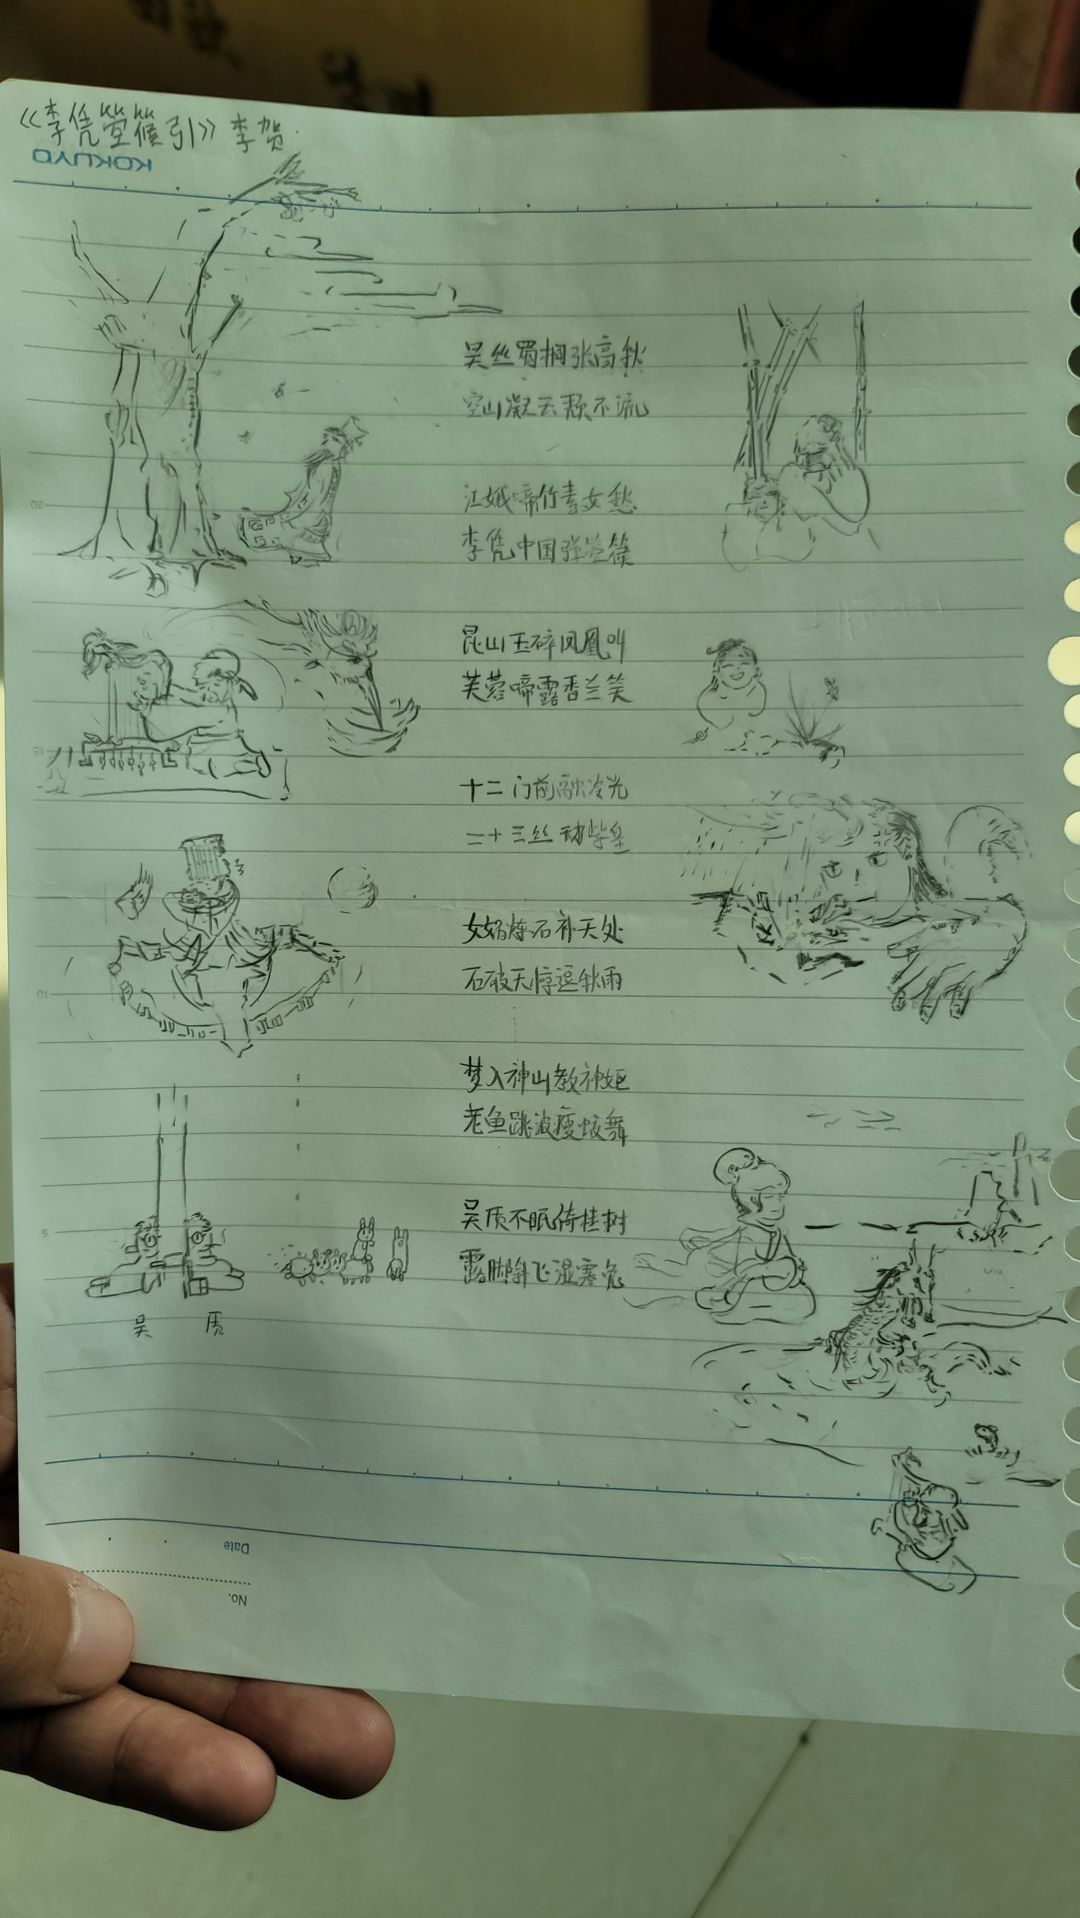 《李凭箜篌引》 李贺
KOKUYO
吴丝蜀桐张高秋
空山凝云颓不流
江娥啼竹素女愁
李凭中国弹箜篌
昆山玉碎凤凰叫
芙蓉啼露香兰笑
十二门前融冷光
二十三丝动紫皇
女娲炼石补天处
石破天惊逗秋雨
梦入神山教神妪
老鱼跳波瘦蛟舞
吴质不眠倚桂树
露脚斜飞湿寒兔
吴 质
20
15
10
5
Date
No.